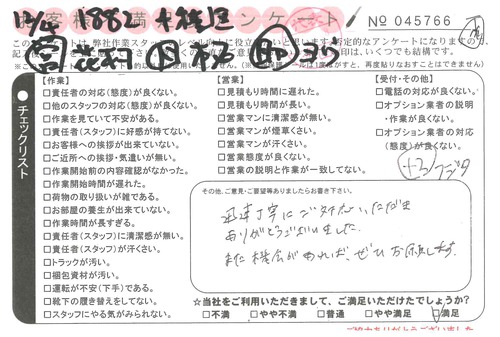 お客様満足アンケート
No 045766
12/4 1882 十
【作業】
□責任者の対応(態度)が良くない。
□他のスタッフの対応(態度)が良くない。
□作業を見ていて不安がある。
□責任者(スタッフ)に好感が持てない。
□お客様への挨拶が出来ていない。
□ご近所への挨拶・気遣いが無い。
□作業開始前の内容確認がなかった。
□作業開始時間が遅れた。
□荷物の取り扱いが雑である。
□お部屋の養生が出来ていない。
□作業時間が長すぎる。
□責任者(スタッフ)に清潔感が無い。
□責任者(スタッフ)が汗くさい。
□トラックが汚い。
□梱包資材が汚い。
□運転が不安(下手)である。
□靴下の履き替えをしてない。
□スタッフにやる気がみられない。
【営業】
□見積もり時間に遅れた。
□見積もり時間が長い。
□営業マンに清潔感が無い。
□営業マンが煙草くさい。
□営業マンが汗くさい。
□営業態度が良くない。
□営業の説明と作業が一致してない。
【受付・その他】
□電話の対応が良くない。
□オプション業者の説明
・作業が良くない。
□オプション業者の対応
(態度)が良くない。
チェックリスト
その他、ご意見・ご要望等ありましたらお書き下さい。
迅速丁寧にご対応いただき
ありがとうございました。
また機会があれば、ぜひお願いします。
☆当社をご利用いただきまして、ご満足いただけたでしょうか?
□不満 □やや不満 □普通 □やや満足 □満足
ご協力ありがとうございました